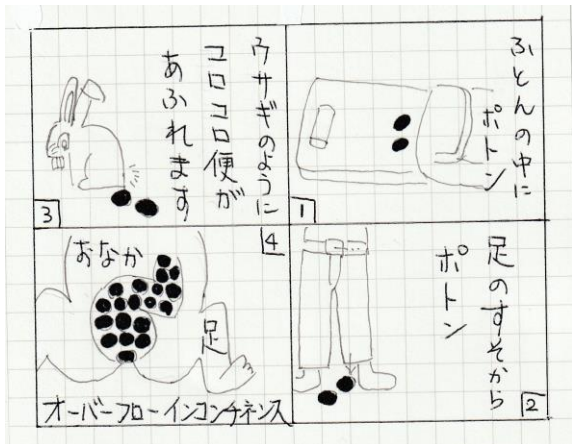 ふとんの中に
ポトン
1
足のすそから
ポトン
2
ウサギのように
コロコロ便が
あふれます
3
4
おなか
足
オーバーフローインコンチネンス